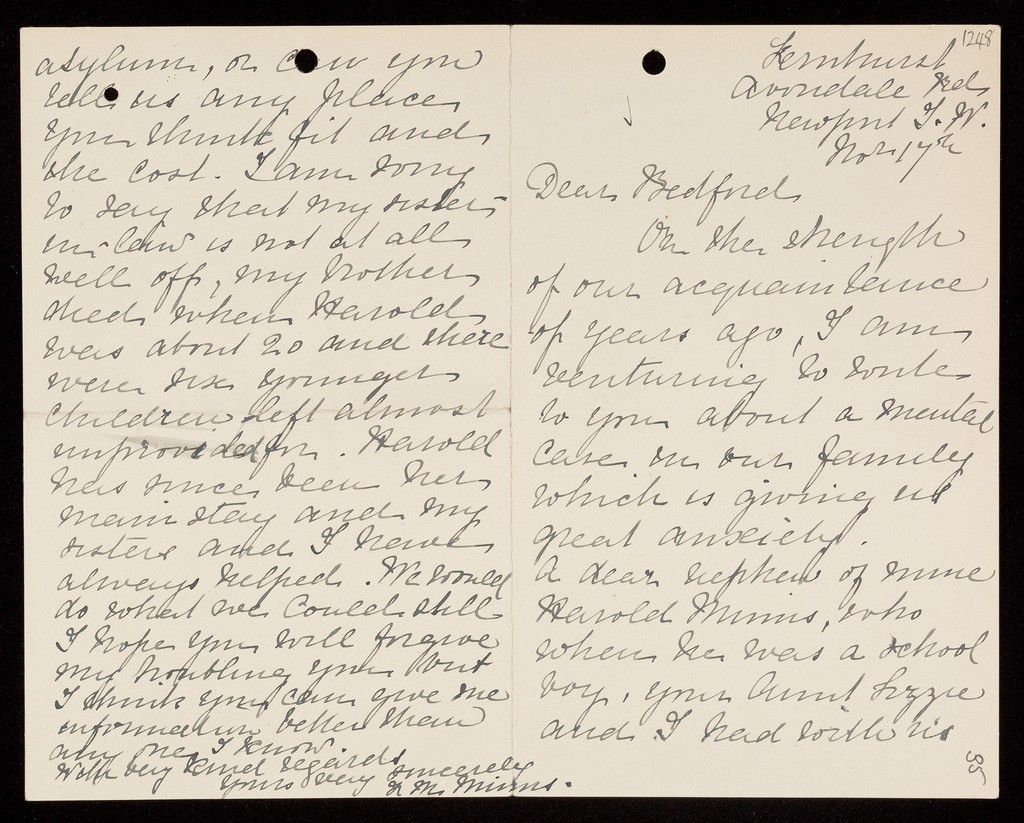 1248
Fernhurst
Avondale Rd
Newport I. W.
Nov 17th
Dear Bedford
On the strength
of our acquaintence
of years ago, I am
venturing to write
to you about a mental
case in our family
which is giving us
great anxiety.
A dear nephew of mine
Harold Mimms, who
when he was a school
boy, your Aunt Lizzie
and I had with us
35
asylum, or can you
tell us any place
you think fit and
the cost. I am sorry
to say that my sister-
in-law is not at all
well off, my brother
died when Harold
was about 20 and there
were six younger
children left almost
unprovided for. Harold
has since been her
main stay and my
sisters and I have
always helped. We would
do what we could still
I hope you will forgive
my troubling you but
I think you can give me
information better than
any one I know.
With very kind regards
Yours very sincerely
M. Mimms.